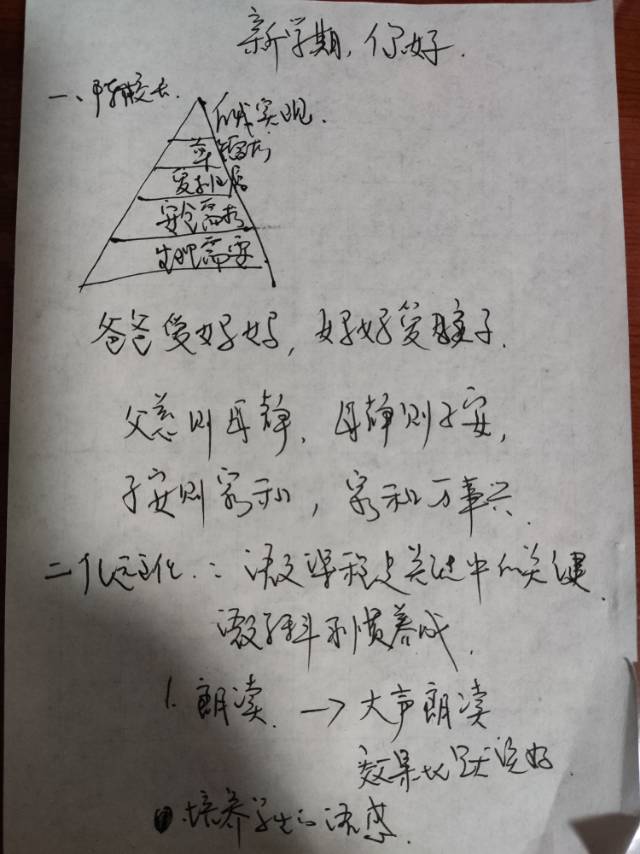 新学期,你好.
一、
自我实现.
尊重需求
爱与归属
安全需求
生理需要
爸爸爱妈妈,妈妈爱孩子.
父慈则母静,母静则子安,
子安则家和,家和万事兴.
二、 :语文学科是关键中的关键.
语文学科 习惯养成.
1.朗读.→大声朗读
效果比默读好.
培养学生的语感.